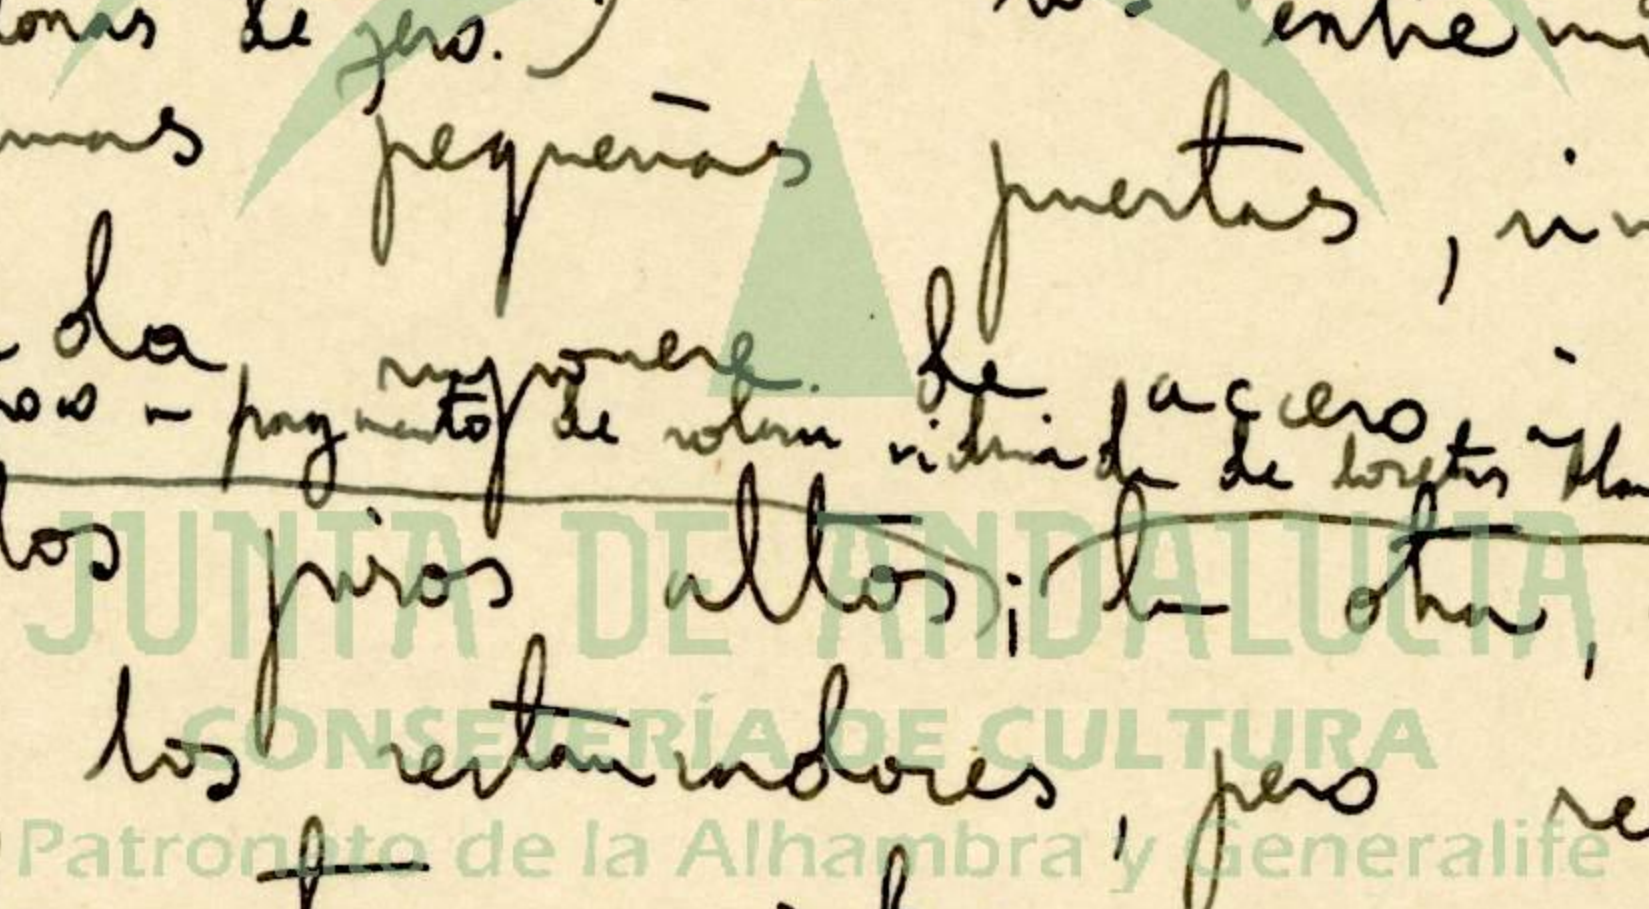 de yeso.) entre
pequeñas puertas,
da supone de acceso, a
fragmentos de solería vidriada de
los pisos altos; la otra,
los restauradores, pero re
JUNTA DE ANDALUCIA
CONSEJERÍA DE CULTURA
Patronato de la Alhambra y Generalife